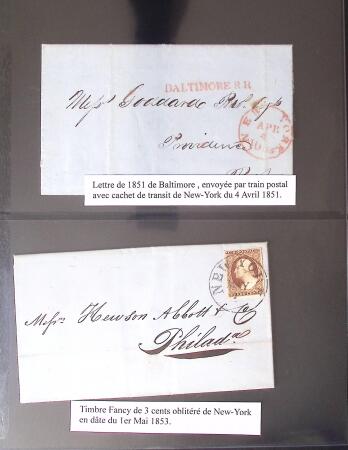 BALTIMORE R.R.
NEW YORK
APR
4
Messrs Goddard
Providence
Lettre de 1851 de Baltimore , envoyée par train postal
avec cachet de transit de New-York du 4 Avril 1851.
NEW
Messrs Hewson Abbott & Co
Philada
Timbre Fancy de 3 cents oblitéré de New-York
en dâte du 1er Mai 1853.